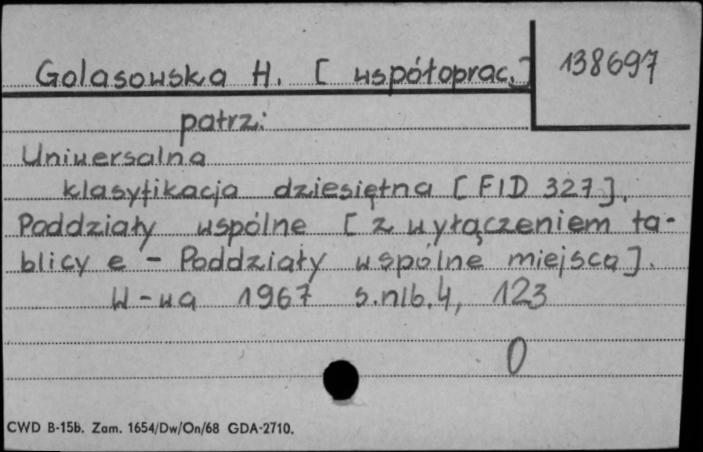 Golasowska H. [współoprac.] 138697
patrz:
Uniwersalna
klasyfikacja dziesiętna [FID 327].
Poddziały wspólne [z wyłączeniem ta-
blicy e - Poddziały wspólne miejsca].
W-wa 1967 s.nlb.4, 123
0
CWD B-15b. Zam. 1654/Dw/On/68 GDA-2710.